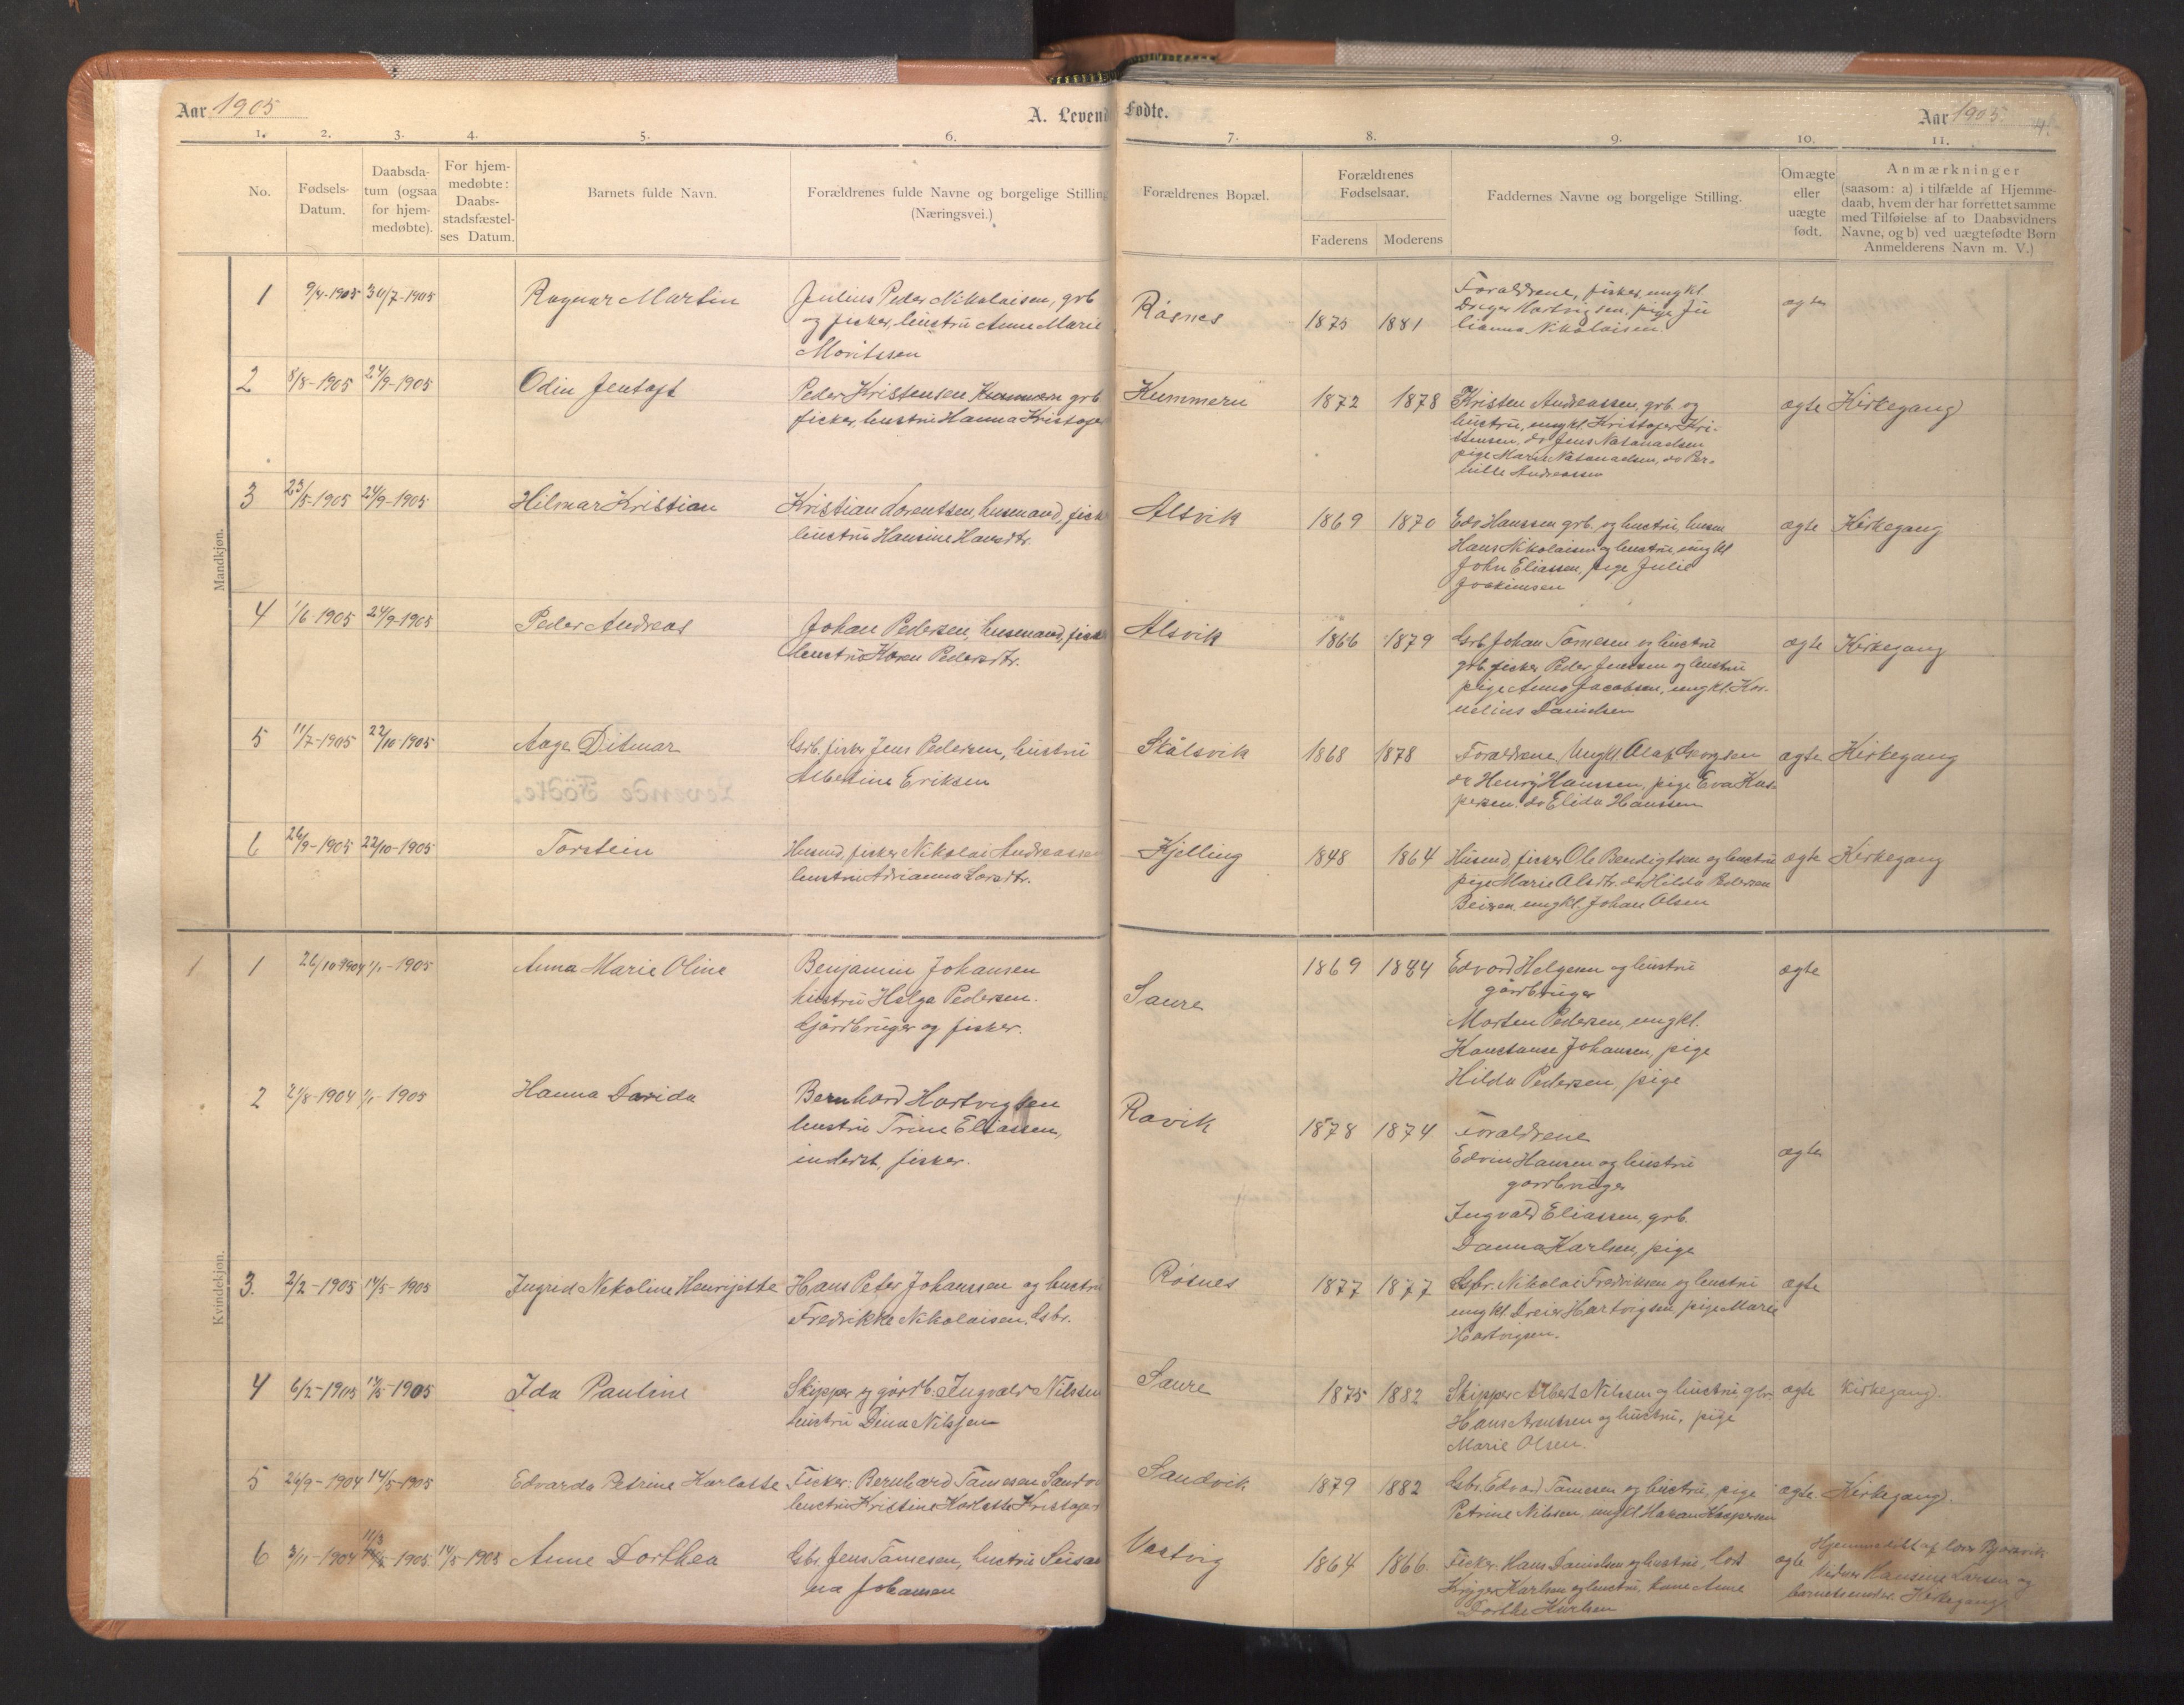 Aar 1905
A. Levende
1. 2. 3. 4. 5. 6.
No.
Fødsels-
Datum.
Daabsda-
tum (ogsaa
for hjem-
medøbte).
For hjem-
medøbte:
Daabs-
stadsfæstel-
ses Datum.
Barnets fulde Navn.
Forældrenes fulde Navne og borgelige Stilling
(Næringsvei.)
Fødte.
Aar 1905. 4.
7. 8. 9. 10. 11.
Forældrenes Bopæl.
Forældrenes
Fødselsaar.
Faderens Moderens
Faddernes Navne og borgelige Stilling.
Om ægte
eller
uægte
født.
Anmærkninger
(saasom: a) i tilfælde af Hjemme-
daab, hvem der har forrettet samme
med Tilføielse af to Daabsvidners
Navne, og b) ved uægtefødte Børn
Anmelderens Navn m. V.)
Mandkjøn.
1 9/4-1905 30/7-1905 Ragnar Martin
Julius Peder Nikolaisen, grb
og fisker, hustru Anne Marie
Moritssen
Råsnes 1875 1881
Forældrene, fisker, ungkl
Dreyer Hartvigsen, pige Ju
lianna Nikolaisen.
ægte
2 8/8-1905 24/9-1905 Odin Jentoft
Peder Kristensen Kummern grb
fisker, hustru Hanna Kristofer
Kummern 1872 1878
Kristen Andreassen, grb. og
hustru, ungkl. Kristofer Kri-
stensen, do Jens Natanaelsen
pige Marie Natanaelsen, do Per-
nille Andreassen
ægte Kirkegang
3 23/5-1905 24/9-1905 Hilmar Kristian
Kristian Lorentsen, husmand, fisk
hustru Hansine Hansdtr.
Alsvik 1869 1870
Edv Hanssen grb. og hustru, husm
Hans Nikolaisen og hustru, ungkl
John Eliassen, pige Julie
Joakimsen
ægte Kirkegang
4 1/6-1905 24/9-1905 Peder Andreas
Johan Pedersen, husmand, fisk
hustru Karen Pedersdtr.
Alsvik 1866 1879
Grb. Johan Tomesen og hustru
grb. fisker Peder Jenssen og hustru
pige Anna Jacobsen, ungkl. Kor-
nelius Danielsen
ægte Kirkegang
5 11/7-1905 22/10-1905 Aage Ditmar
Grb. fisker Jens Pedersen, hustru
Albertine Eriksen
Skålsvik 1868 1878
Forældrene, Ungkl Olaf Georgsen
do Henry Hanssen, pige Eva Kas-
persen, do Elida Hanssen
ægte Kirkegang
Levende Födte.
6 26/9-1905 22/10-1905 Torstein
Husmd, fisker Nikolai Andreassen
hustru Adrianna Larsdtr.
Kjelling 1848 1864
Husmd, fisker Ole Bendigtsen og hustru
pige Marie Olsdtr. do Hilda Pedersen
Beieren, ungkl. Johan Olsen
ægte Kirkegang
Kvindekjøn.
1 1 26/10 1904 1/1-1905 Anna Marie Oline
Benjamin Johansen
hustru Helga Pedersen.
Gårdbruger og fisker.
Saure 1869 1884
Edvard Helgesen og hustru
gårdbruger
Morten Pedersen, ungkl.
Konstanse Johansen, pige
Hilda Pedersen, pige
ægte
2 21/8-1904 1/1-1905 Hanna Davida
Bernhard Hartvigsen
hustru Trine Eliassen,
inderst, fisker.
Ravik 1878 1874
Forældrene
Edvin Hansen og hustru
gårdbruger
Ingvald Eliassen, grb.
Danna Karlsen, pige
ægte
3. 2/2-1905 14/5-1905 Ingrid Nikoline Henrijette
Hans Peter Johanssen og hustru
Fredrikke Nikolaisen. Gbr.
Råsnes 1877 1877
Gbr. Nikolai Fredriksen og hustru
ungkl. Dreier Hartvigsen pige Marie
Hartvigsen.
ægte
4 6/2-1905 14/5-1905 Ida Pauline
Skipper og gårdb. Ingvald Nilssen
hustru Dina Nilssen
Saure 1875 1882
Skipper Albert Nilssen og hustru gbr.
Hans Arntsen og hustru, pige
Marie Olsen.
ægte Kirkegang.
5 26/9-1904 14/5-1905 Edvarda Petrine Karlotte
Fisker: Bernhard Tomesen Sandv
hustru Kristine Karlotte Kristofer
Sandvik 1879 1882
Gbr. Edvard Tomesen og hustru, pige
Petrine Nilssen, ungkl Hakan Kaspersen
ægte. Kirkegang.
6 3/11-1904 11/3 1905. 14/5-1905 Anne Dorthea
Gbr. Jens Tomesen, hustru Susan
na Johansen
Vastvig 1864 1866
Fisker Hans Danielsen og hustru, lods
Krøger Karlsen og hustru, Anne
Dorthe Karlsen
ægte Hjemmedøbt af
Vidner Hansine Larsen og
barnets moder. Kirkegang